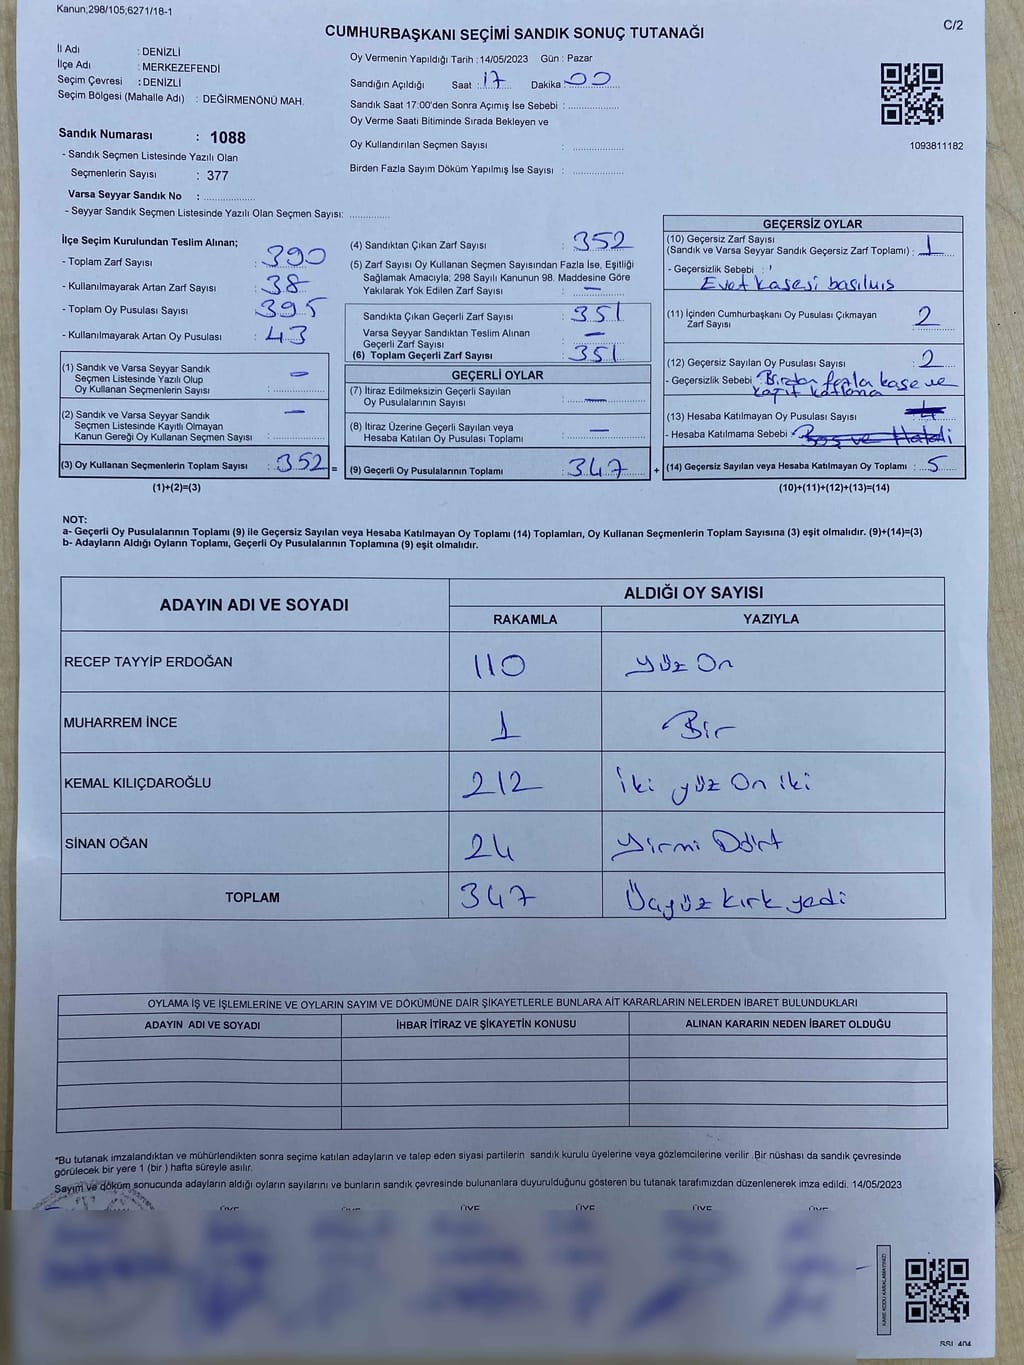 Kanun,298/105,6271/18-1
C/2
CUMHURBAŞKANI SEÇİMİ SANDIK SONUÇ TUTANAĞI
İl Adı : DENİZLİ
İlçe Adı : MERKEZEFENDİ
Seçim Çevresi : DENİZLİ
Seçim Bölgesi (Mahalle Adı) : DEĞİRMENÖNÜ MAH.
Sandık Numarası : 1088
- Sandık Seçmen Listesinde Yazılı Olan
Seçmenlerin Sayısı : 377
Varsa Seyyar Sandık No :
- Seyyar Sandık Seçmen Listesinde Yazılı Olan Seçmen Sayısı:
Oy Vermenin Yapıldığı Tarih : 14/05/2023 Gün : Pazar
Sandığın Açıldığı Saat : 17 Dakika : 00
Sandık Saat 17:00'den Sonra Açımış İse Sebebi :
Oy Verme Saati Bitiminde Sırada Bekleyen ve
Oy Kullandırılan Seçmen Sayısı :
Birden Fazla Sayım Döküm Yapılmış İse Sayısı :
1093811182
İlçe Seçim Kurulundan Teslim Alınan;
- Toplam Zarf Sayısı : 390
- Kullanılmayarak Artan Zarf Sayısı : 38
- Toplam Oy Pusulası Sayısı : 395
- Kullanılmayarak Artan Oy Pusulası : 43
(1) Sandık ve Varsa Seyyar Sandık
Seçmen Listesinde Yazılı Olup
Oy Kullanan Seçmenlerin Sayısı : —
(2) Sandık ve Varsa Seyyar Sandık
Seçmen Listesinde Kayıtlı Olmayan
Kanun Gereği Oy Kullanan Seçmen Sayısı : —
(3) Oy Kullanan Seçmenlerin Toplam Sayısı : 352 =
(1)+(2)=(3)
(4) Sandıktan Çıkan Zarf Sayısı : 352
(5) Zarf Sayısı Oy Kullanan Seçmen Sayısından Fazla İse, Eşitliği
Sağlamak Amacıyla; 298 Sayılı Kanunun 98. Maddesine Göre
Yakılarak Yok Edilen Zarf Sayısı : —
Sandıkta Çıkan Geçerli Zarf Sayısı : 351
Varsa Seyyar Sandıktan Teslim Alınan
Geçerli Zarf Sayısı : —
(6) Toplam Geçerli Zarf Sayısı : 351
GEÇERLİ OYLAR
(7) İtiraz Edilmeksizin Geçerli Sayılan
Oy Pusulalarının Sayısı : —
(8) İtiraz Üzerine Geçerli Sayılan veya
Hesaba Katılan Oy Pusulası Toplamı : —
(9) Geçerli Oy Pusulalarının Toplamı : 347 +
GEÇERSİZ OYLAR
(10) Geçersiz Zarf Sayısı
(Sandık ve Varsa Seyyar Sandık Geçersiz Zarf Toplamı) : 1
- Geçersizlik Sebebi :
Evet kaşesi basılmış
(11) İçinden Cumhurbaşkanı Oy Pusulası Çıkmayan
Zarf Sayısı : 2
(12) Geçersiz Sayılan Oy Pusulası Sayısı : 2
- Geçersizlik Sebebi : Birden fazla kaşe ve
kağıt katlama
(13) Hesaba Katılmayan Oy Pusulası Sayısı
- Hesaba Katılmama Sebebi : Boş ve Hatalı
(14) Geçersiz Sayılan veya Hesaba Katılmayan Oy Toplamı : 5
(10)+(11)+(12)+(13)=(14)
NOT:
a- Geçerli Oy Pusulalarının Toplamı (9) ile Geçersiz Sayılan veya Hesaba Katılmayan Oy Toplamı (14) Toplamları, Oy Kullanan Seçmenlerin Toplam Sayısına (3) eşit olmalıdır. (9)+(14)=(3)
b- Adayların Aldığı Oyların Toplamı, Geçerli Oy Pusulalarının Toplamına (9) eşit olmalıdır.
ADAYIN ADI VE SOYADI
ALDIĞI OY SAYISI
RAKAMLA YAZIYLA
RECEP TAYYİP ERDOĞAN 110 Yüz On
MUHARREM İNCE 1 Bir
KEMAL KILIÇDAROĞLU 212 İki yüz On iki
SİNAN OĞAN 24 Yirmi Dört
TOPLAM 347 Üçyüz kırk yedi
OYLAMA İŞ VE İŞLEMLERİNE VE OYLARIN SAYIM VE DÖKÜMÜNE DAİR ŞİKAYETLERLE BUNLARA AİT KARARLARIN NELERDEN İBARET BULUNDUKLARI
ADAYIN ADI VE SOYADI İHBAR İTİRAZ VE ŞİKAYETİN KONUSU ALINAN KARARIN NEDEN İBARET OLDUĞU
*Bu tutanak imzalandıktan ve mühürlendikten sonra seçime katılan adayların ve talep eden siyasi partilerin sandık kurulu üyelerine veya gözlemcilerine verilir .Bir nüshası da sandık çevresinde
görülecek bir yere 1 (bir ) hafta süreyle asılır.
Sayım ve döküm sonucunda adayların aldığı oyların sayılarını ve bunların sandık çevresinde bulunanlara duyurulduğunu gösteren bu tutanak tarafımızdan düzenlenerek imza edildi. 14/05/2023
ÜYE ÜYE ÜYE ÜYE ÜYE ÜYE